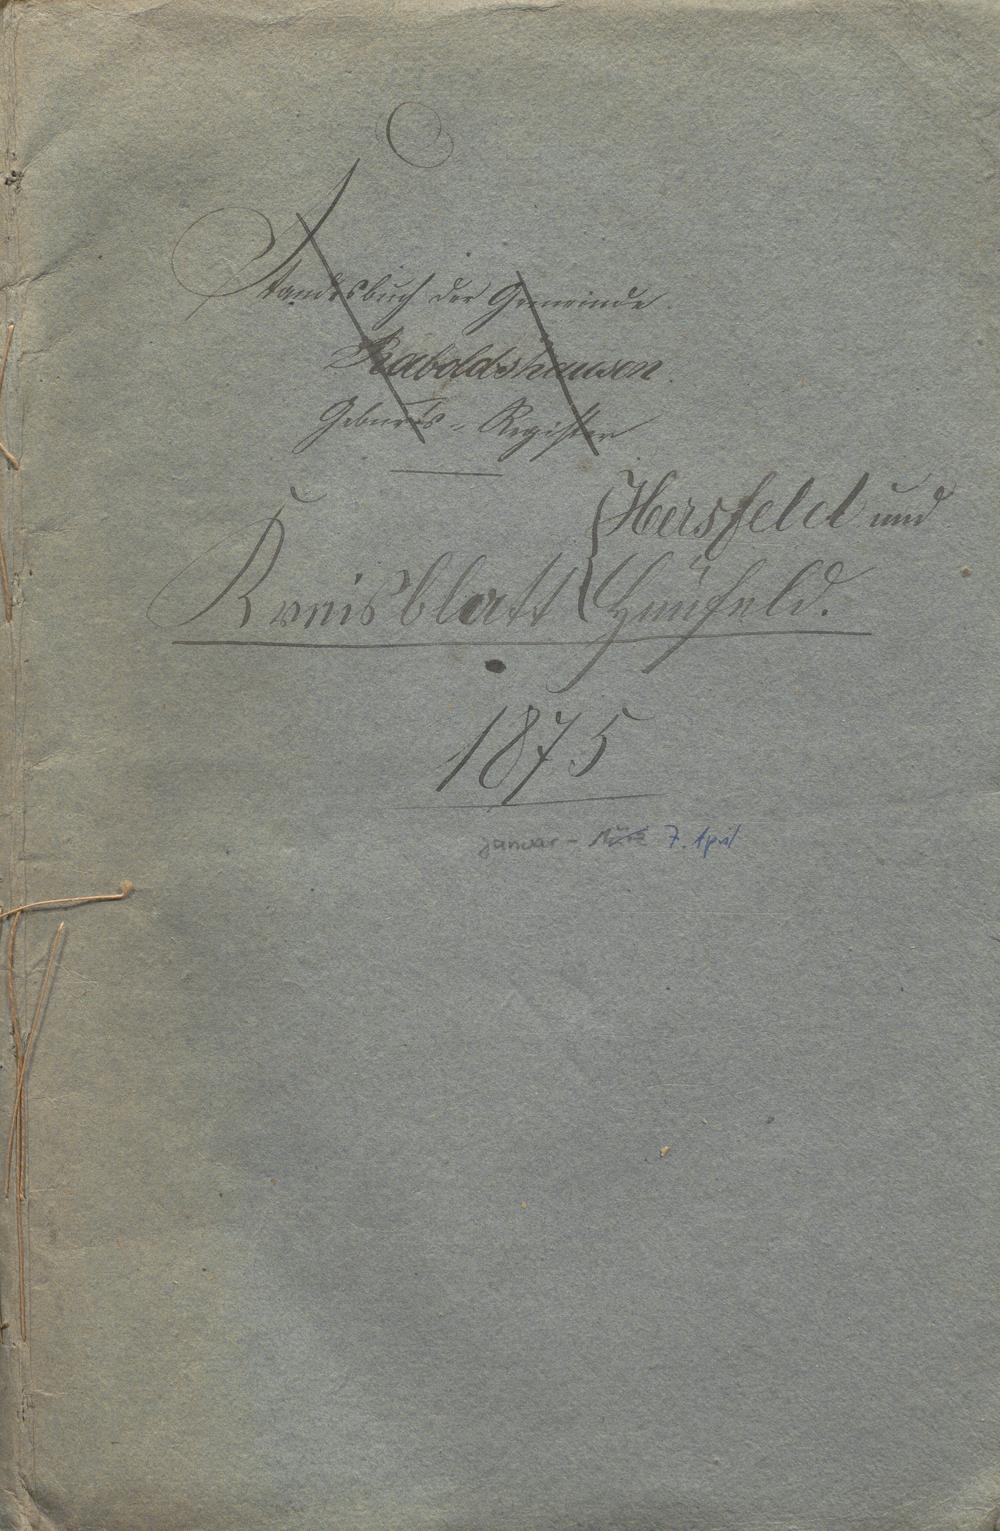 Standesbuch der Gemeinde
Raboldshausen.
Geburts-Register
Kreisblatt { Hersfeld und
Hünfeld.
1875
Januar - März 7. April